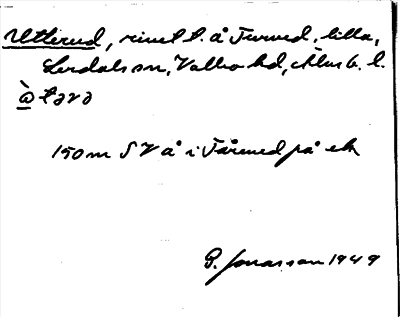 Utterud, rivet t. å Turved, lilla,
Lerdals sn, Valbo hd, Älvsb. l.
150 m S V å i Tåreud på ek
G. Jonasson 1949